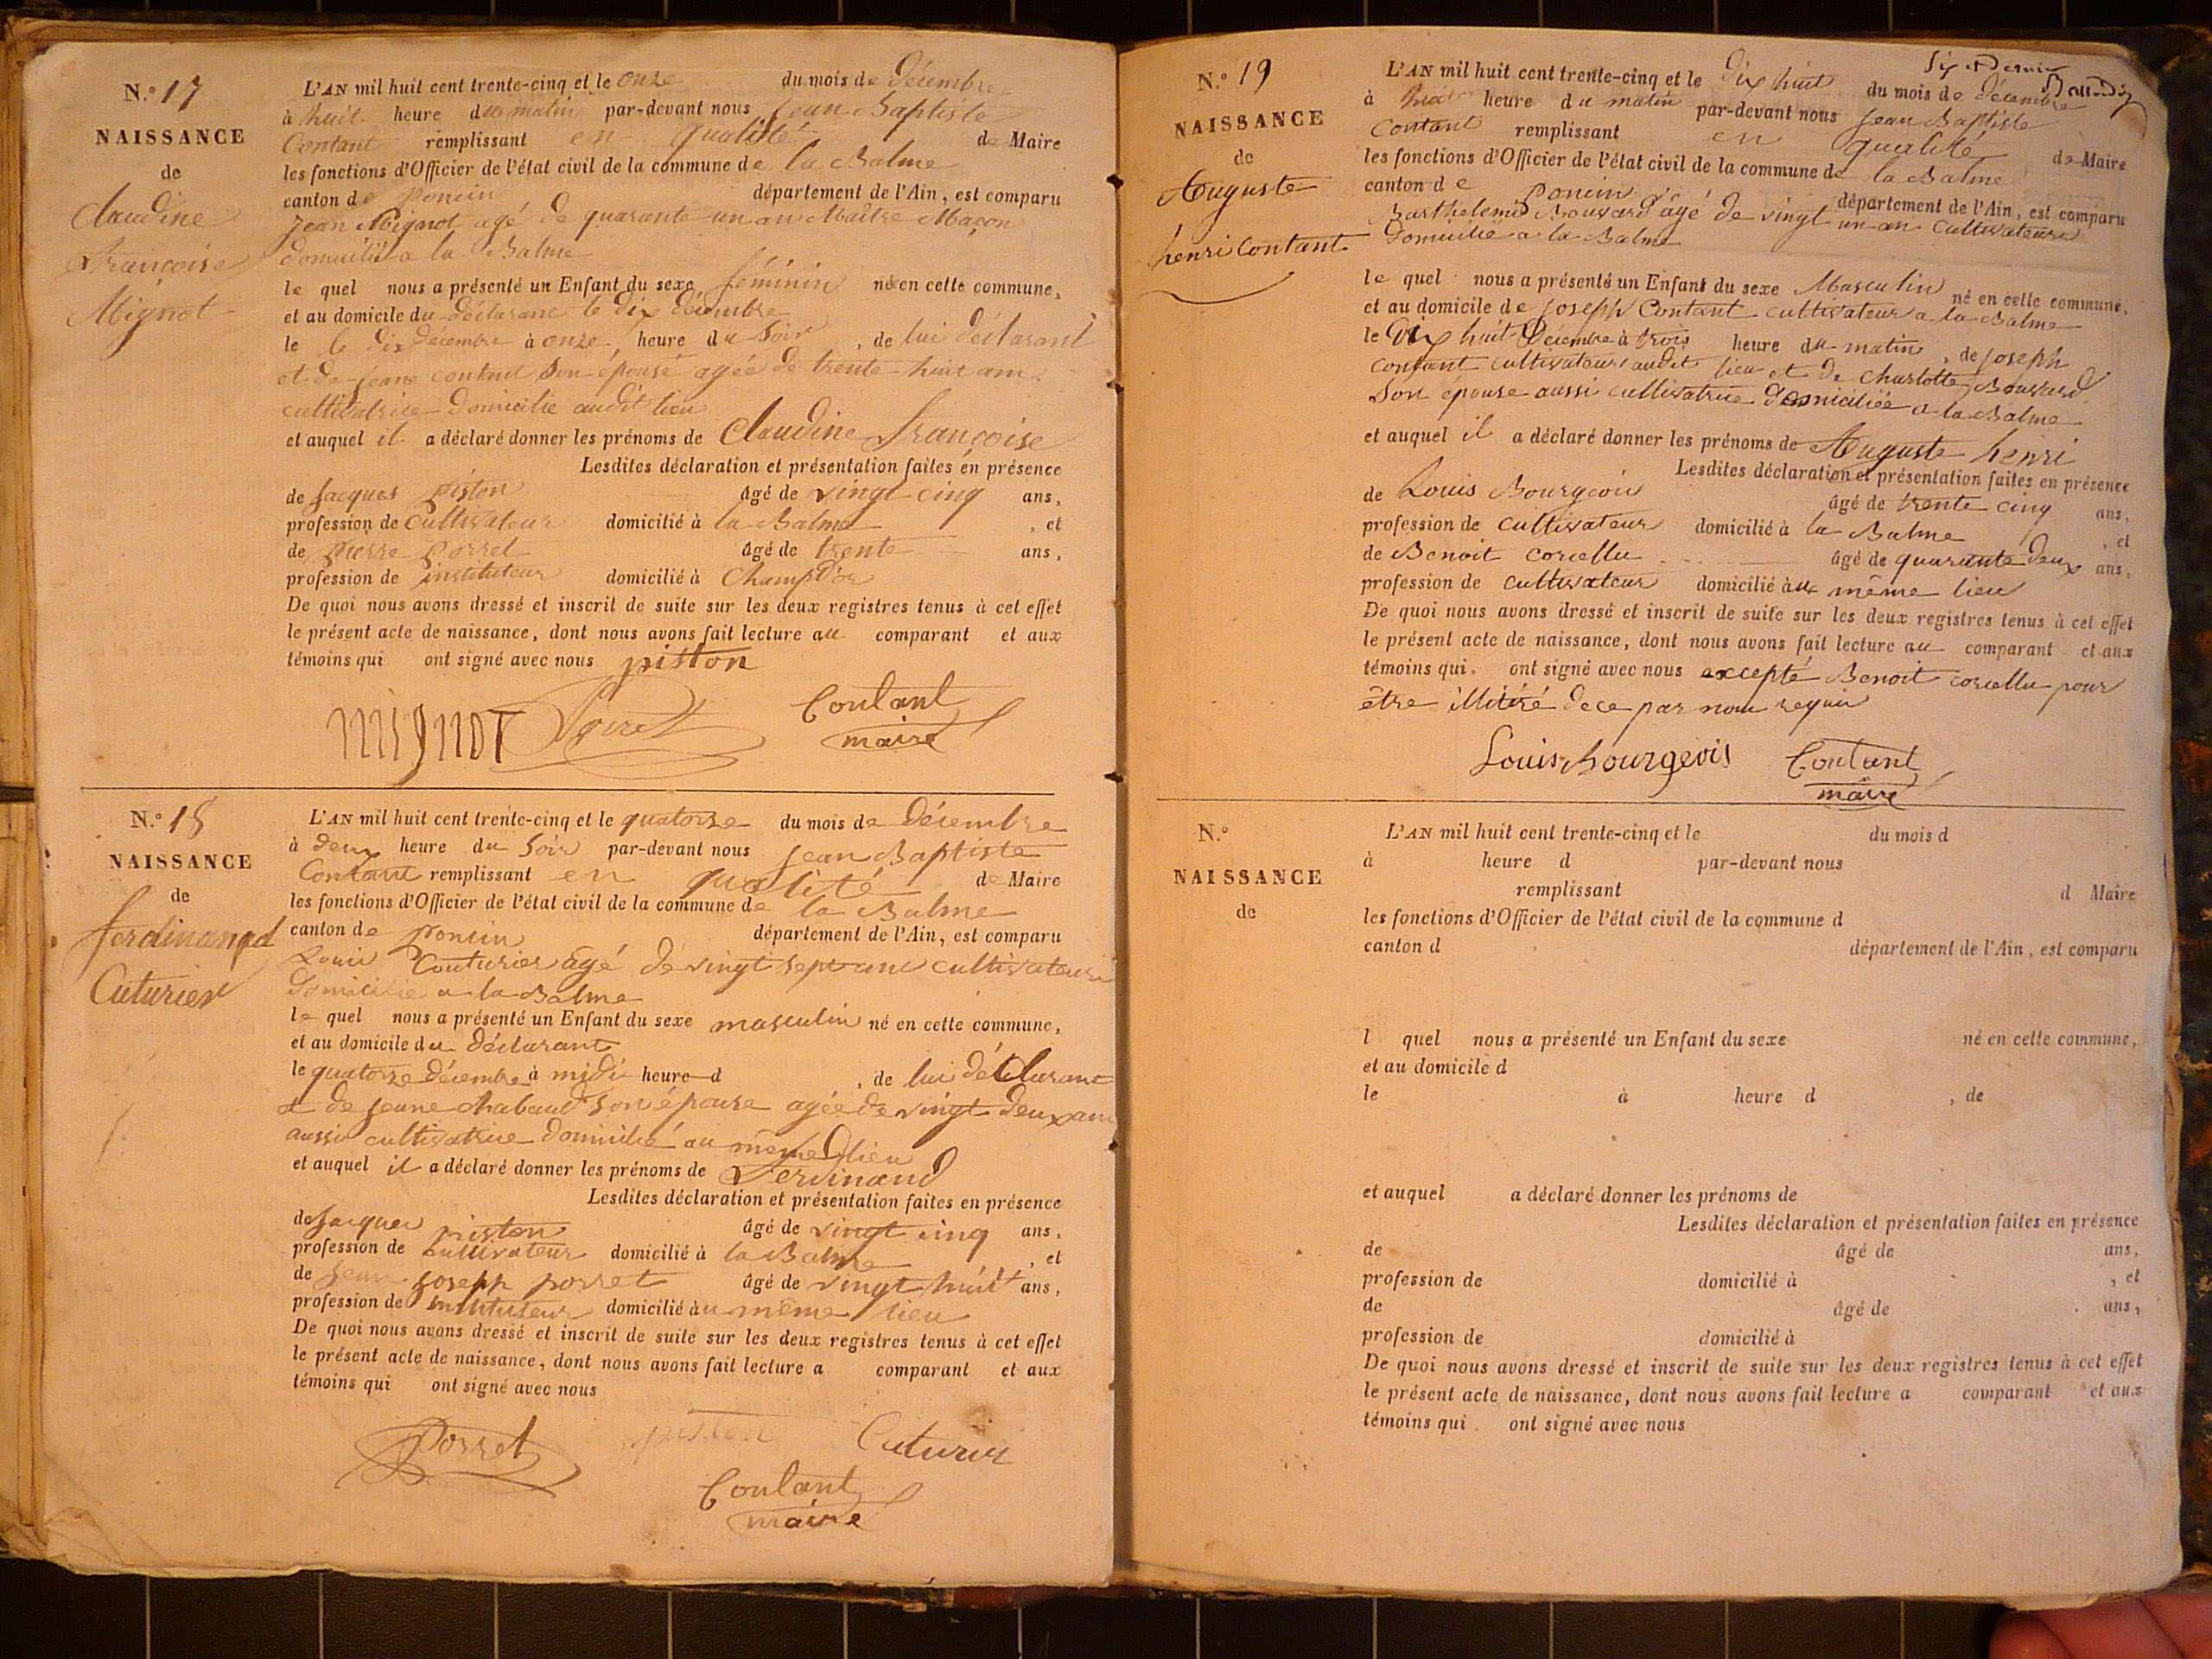 N.º 17
NAISSANCE
de
Claudine
Françoise
Mignot
L'AN mil huit cent trente-cinq et le onze du mois de décembre
à huit heure du matin par-devant nous Jean Baptiste
Contant remplissant en qualité de Maire
les fonctions d'Officier de l'état civil de la commune de la Balme
canton de Poncin département de l'Ain, est comparu
Jean Mignot agé de quarante un an Maître Maçon
domicilié a la Balme
le quel nous a présenté un Enfant du sexe féminin né en cette commune,
et au domicile du déclarant le dix décembre
le le dix décembre à onze heure du soir, de lui déclarant
et de Jeane contant son épouse agée de trente huit ans
cultivatrice domicilie audit lieu
et auquel il a déclaré donner les prénoms de Claudine françoise
Lesdites déclaration et présentation faites en présence
de Jacques piston âgé de vingt cinq ans,
profession de cultivateur domicilié à la Balme, et
de pierre Porret âgé de trente ans,
profession de instituteur domicilié à Champ d'or
De quoi nous avons dressé et inscrit de suite sur les deux registres tenus à cet effet
le présent acte de naissance, dont nous avons fait lecture au comparant et aux
témoins qui ont signé avec nous piston
mignot Porret Contant
maire
N.º 18
NAISSANCE
de
ferdinand
Cuturier
L'AN mil huit cent trente-cinq et le quatorze du mois de décembre
à deux heure du Soir par-devant nous Jean Baptiste
Contant remplissant en qualité de Maire
les fonctions d'Officier de l'état civil de la commune de la Balme
canton de Poncin département de l'Ain, est comparu
Louis Couturier agé de vingt sept ans cultivateur
domicilie a la Balme
le quel nous a présenté un Enfant du sexe masculin né en cette commune,
et au domicile du déclarant
le quatorze décembre à midi heure d, de lui déclarant
et de Jeane chabaud son épouse agée de vingt deux ans
aussi cultivatrice domicilié au même lieu
et auquel il a déclaré donner les prénoms de Ferdinand
Lesdites déclaration et présentation faites en présence
de Jacques piston âgé de vingt cinq ans,
profession de cultivateur domicilié à la Balme, et
de Jean Joseph porret âgé de vingt huit ans,
profession de instituteur domicilié au même lieu
De quoi nous avons dressé et inscrit de suite sur les deux registres tenus à cet effet
le présent acte de naissance, dont nous avons fait lecture a comparant et aux
témoins qui ont signé avec nous
Porret piston Cuturier
Contant
maire
Six et Dernier
N.º 19
NAISSANCE
de
Auguste
henri Contant
L'AN mil huit cent trente-cinq et le dix huit du mois de décembre
à heure du matin par-devant nous Jean Baptiste
Contant remplissant en qualité de Maire
les fonctions d'Officier de l'état civil de la commune de la Balme
canton de Poncin département de l'Ain, est comparu
Barthelemi Bouvard âgé de vingt un an cultivateur
domicilié a la Balme
le quel nous a présenté un Enfant du sexe Masculin né en cette commune,
et au domicile de joseph Contant cultivateur a la Balme
le dix huit décembre à trois heure du matin, de joseph
Contant cultivateur audit lieu et de Charlotte Bouvard
Son épouse aussi cultivatrice domiciliée a la Balme
et auquel il a déclaré donner les prénoms de Auguste henri
Lesdites déclaration et présentation faites en présence
de Louis Bourgeois âgé de trente cinq ans,
profession de cultivateur domicilié à la Balme, et
de Benoit corcellu âgé de quarante deux ans,
profession de cultivateur domicilié au même lieu
De quoi nous avons dressé et inscrit de suite sur les deux registres tenus à cet effet
le présent acte de naissance, dont nous avons fait lecture au comparant et aux
témoins qui ont signé avec nous excepté Benoit corcellu pour
être illitéré de ce par nous requis
Louis Bourgeois Contant
maire
N.º
NAISSANCE
de
L'AN mil huit cent trente-cinq et le du mois d
à heure d par-devant nous
remplissant d Maire
les fonctions d'Officier de l'état civil de la commune d
canton d département de l'Ain, est comparu
l quel nous a présenté un Enfant du sexe né en cette commune,
et au domicile d
le à heure d, de
et auquel a déclaré donner les prénoms de
Lesdites déclaration et présentation faites en présence
de âgé de ans,
profession de domicilié à, et
de âgé de ans,
profession de domicilié à
De quoi nous avons dressé et inscrit de suite sur les deux registres tenus à cet effet
le présent acte de naissance, dont nous avons fait lecture a comparant et aux
témoins qui ont signé avec nous